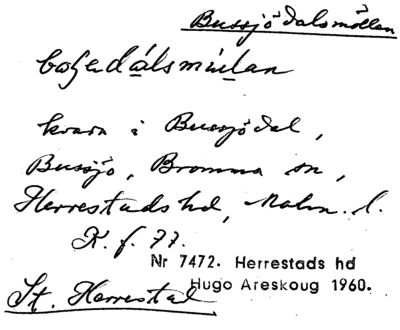 Bussjödalsmöllan
kvarn i Bussjödal,
Bussjö, Bromma sn,
Herrestads hd, Malm. l.
K. f. 77.
Nr 7472. Herrestads hd
Hugo Areskoug 1960.
St. Herrestad